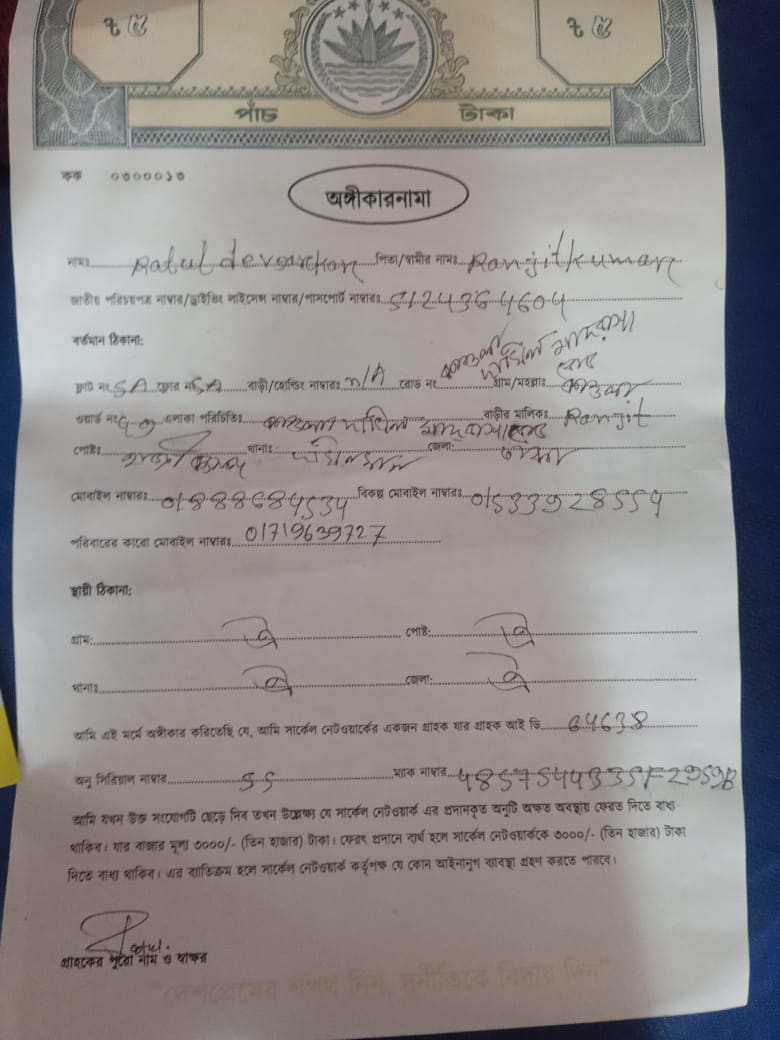 ২ ৫ ২ ৫
পাঁচ টাকা
কক ০৩০০০১৩
অঙ্গীকারনামা
নামঃ Ratul devnarchon পিতা/স্বামীর নামঃ Ranjit kumar
জাতীয় পরিচয়পত্র নাম্বার/ড্রাইভিং লাইসেন্স নাম্বার/পাসপোর্ট নাম্বারঃ 5124364604
বর্তমান ঠিকানা:
ফ্লাট নং 5A ফ্লোর নং 5A বাড়ী/হোল্ডিং নাম্বারঃ n/A রোড নং দাখিল মাদ্রাসা রোড গ্রাম/মহল্লাঃ
ওয়ার্ড নং এলাকা পরিচিতিঃ দাখিল মাদ্রাসা রোড বাড়ীর মালিকঃ Ranjit
পোষ্টঃ থানাঃ জেলা: ঢাকা
মোবাইল নাম্বারঃ 01888684534 বিকল্প মোবাইল নাম্বারঃ 01533928554
পরিবারের কারো মোবাইল নাম্বারঃ 01719639727
স্থায়ী ঠিকানা:
গ্রাম: ঐ পোষ্ট: ঐ
থানাঃ ঐ জেলা: ঐ
আমি এই মর্মে অঙ্গীকার করিতেছি যে, আমি সার্কেল নেটওয়ার্কের একজন গ্রাহক যার গ্রাহক আই ডি 64638
অনু সিরিয়াল নাম্বার 55 ম্যাক নাম্বার 48575443351F2959B
আমি যখন উক্ত সংযোগটি ছেড়ে দিব তখন উল্লেক্ষ্য যে সার্কেল নেটওয়ার্ক এর প্রদানকৃত অনুটি অক্ষত অবস্থায় ফেরত দিতে বাধ্য
থাকিব। যার বাজার মূল্য ৩০০০/- (তিন হাজার) টাকা। ফেরৎ প্রদানে ব্যর্থ হলে সার্কেল নেটওয়ার্ককে ৩০০০/- (তিন হাজার) টাকা
দিতে বাধ্য থাকিব। এর ব্যতিক্রম হলে সার্কেল নেটওয়ার্ক কর্তৃপক্ষ যে কোন আইনানুগ ব্যাবস্থা গ্রহণ করতে পারবে।
Ratul.
গ্রাহকের পুরো নাম ও স্বাক্ষর
"দেশপ্রেমের শপথ নিন, দুর্নীতিকে বিদায় দিন"